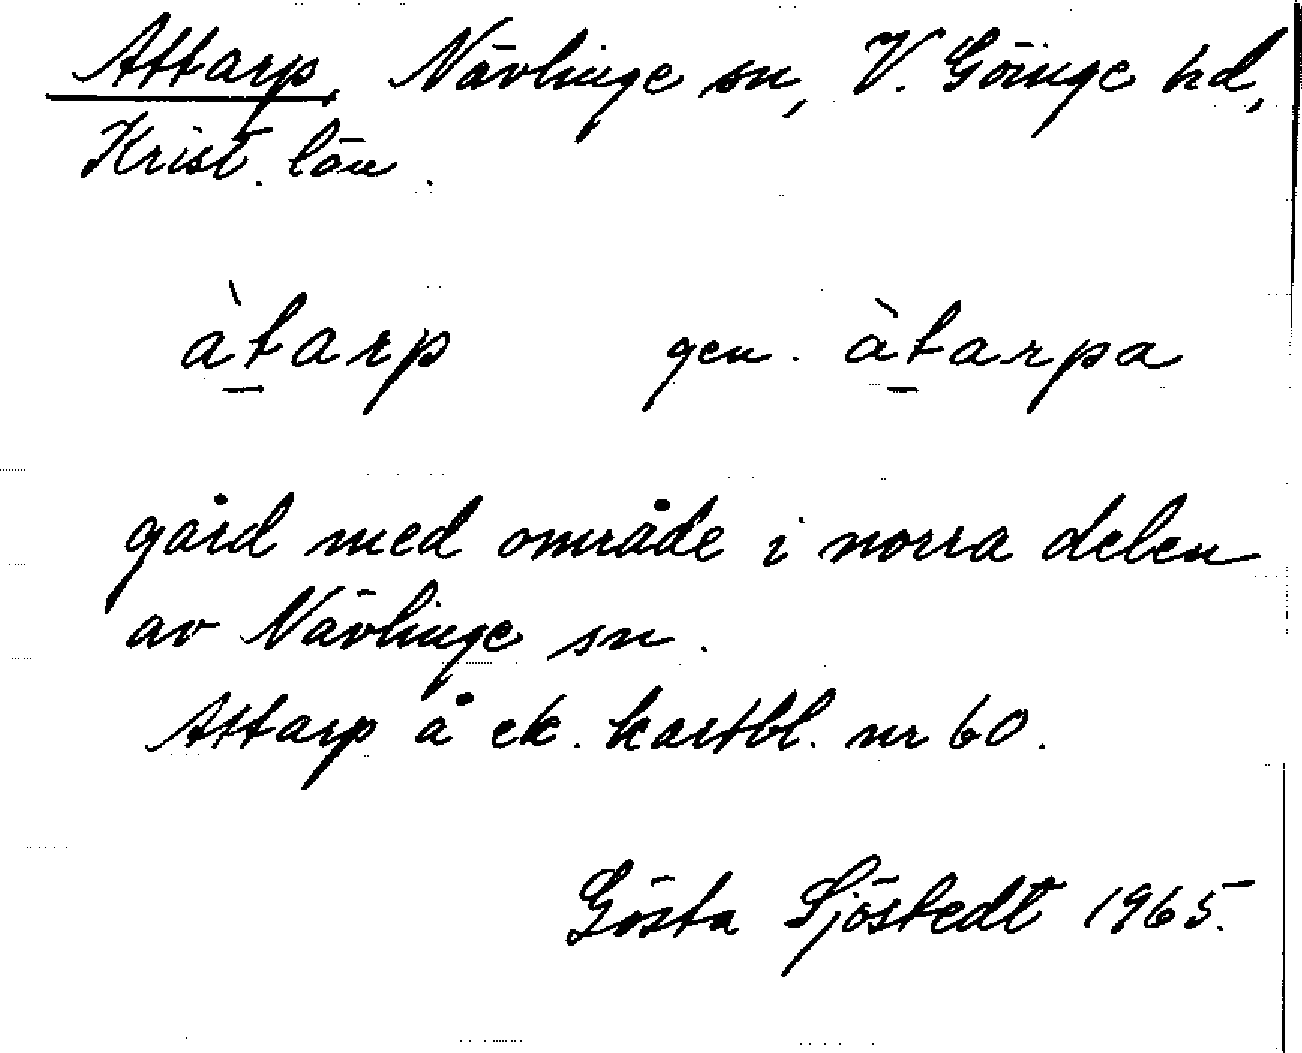 Attarp, Nävlinge sn, V. Göinge hd,
Krist. län.
àt̲arp gen. àt̲arpa
gård med område i norra delen
av Nävlinge sn.
Attarp å ek. kartbl. nr 60.
Gösta Sjöstedt 1965.